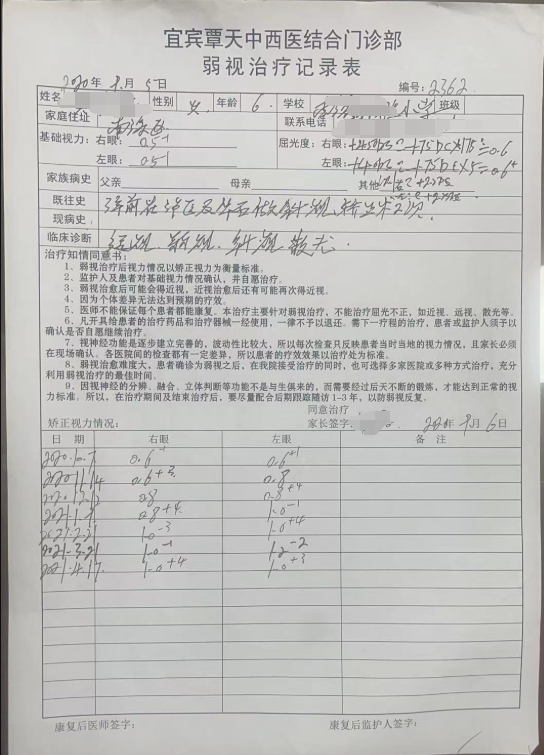 宜宾覃天中西医结合门诊部
弱视治疗记录表
2020年 月 5日 编号: 2362
姓名 性别 女. 年龄 6. 学校 小学 班级
家庭住址 联系电话
基础视力: 右眼: 0.5-1 屈光度: 右眼:
左眼: 0.5-1 左眼:
家族病史 父亲 母亲 其他
既往史
现病史
临床诊断 远视. 弱视. 斜视. 散光.
治疗知情同意书:
1、弱视治疗后视力情况以矫正视力为衡量标准。
2、监护人及患者对基础视力情况确认,并自愿治疗。
3、弱视治愈后可能会得近视,近视治愈后还有可能再次得近视。
4、因为个体差异无法达到预期的疗效。
5、医师不能保证每个患者都能康复。本治疗主要针对弱视治疗,不能治疗屈光不正,如近视、远视、散光等。
6、凡开具给患者的治疗药品和治疗器械一经使用,一律不予以退还。需下一疗程的治疗,患者或监护人须予以
确认是否自愿继续治疗。
7、视神经功能是逐步建立完善的,波动性比较大,所以每次检查只反映患者当时当地的视力情况,且家长必须
在现场确认。各医院间的检查都有一定差异,所以患者的疗效效果以治疗处为标准。
8、弱视治愈难度大,患者确诊为弱视之后,在我院接受治疗的同时,也可选择多家医院或多种方式治疗,充分
利用弱视治疗的最佳时间。
9、因视神经的分辨、融合、立体判断等功能不是与生俱来的,而需要经过后天不断的锻炼,才能达到正常的视
力标准。所以,在治疗期间及结束治疗后,要尽量配合后期跟踪随访1-3年,以防弱视反复。
同意治疗
矫正视力情况: 家长签字: 2020年 月 6日
日 期 右眼 左眼 备 注
0.6-1 0.6+1
2020.11.14 0.6+3 0.8
0.8 0.8+4
0.8+4 1.0-1
1.0-3 1.0+4
2021-3-21 1.0-1 1.2-2
2021.4.17 1.0+4 1.0+3
康复后医师签字: 康复后监护人签字: